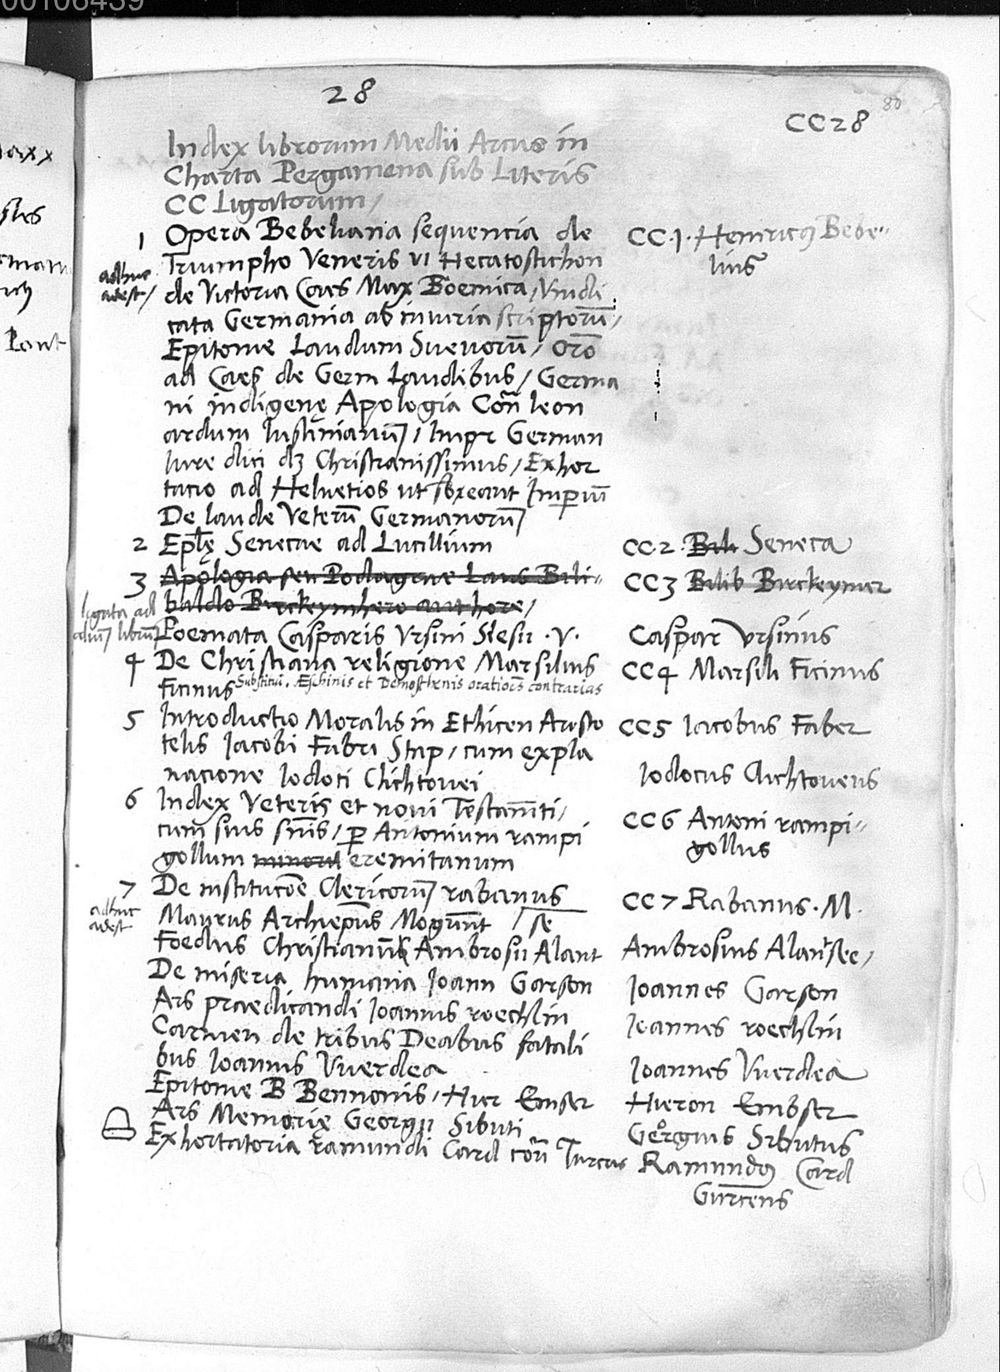 00106439
28
80
CC28
Index librorum Medii Arcus in
Charta Pergamena sub Literis
CC Ligatorum
1 Opera Bebeliana sequencia de
CC.1. Henricus Bebe-
lius
adhuc
adest
Triumpho Veneris VI Hecatostichon
de Victoria Caes Max Boemica, Vindi
cata Germania ab iniuria scriptorū,
Epitome Laudum Suevorū, Orō
ad Caes de Germ Laudibus, Germa
ni indigenę Apologia Con̄ leon
ardum Iustinianū, Impr German
Iure dici dz Christianissimus, Exhor
tacio ad Helvetios ut Imperiū
De laude Veterū Germanorū
2 Eplę Senecae ad Lucillium
CC.2. Bili Seneca
3 Apologia seu Podagrae Laus Bili-
baldo Birckeymhero authore,
CC3 Bilib Birckeymer
ligata ad
alium librum
Poemata Casparis Ursini Slesii .V.
Caspar Ursinus
4 De Christiana religione Marsilius
Ficinus Substitui. Æschinis et Demosthenis orationes contrarias
CC4 Marsili Ficinus
5 Introductio Moralis in Ethicen Aristo
telis Iacobi Fabri Stap, cum expla
nacione Iodoci Clichtovei
CC5 Iacobus Faber
Iodocus Clichtoveus
6 Index Veteris et novi Testamti,
cum suis , p Antonium rampi
gollum minorit eremitanum
CC6 Antoni rampi-
gollus
7 De institucōe Clericorū rabanus
Maurus Archiepus Mogunt
CC7 Rabanus. M.
adhuc
adest
se
Foedus Christianū Ambrosii Alant
Ambrosius Alantsee,
De miseria humana Ioann Garson
Ioannes Garson
Ars praedicandi Ioannis roechlin
Ioannes roechlin
Carmen de tribus Deabus fatali
bus Ioannis Vuerdea
Ioannes Vuerdea
Epitome B Bennonis, Hier Emser
Hieron Embser
Ars Memorię Georgii Sibuti
Georgius Sibutus
Exhortatoria ramundi Card con̄ Turcas
Ramundus Card
Gurcens